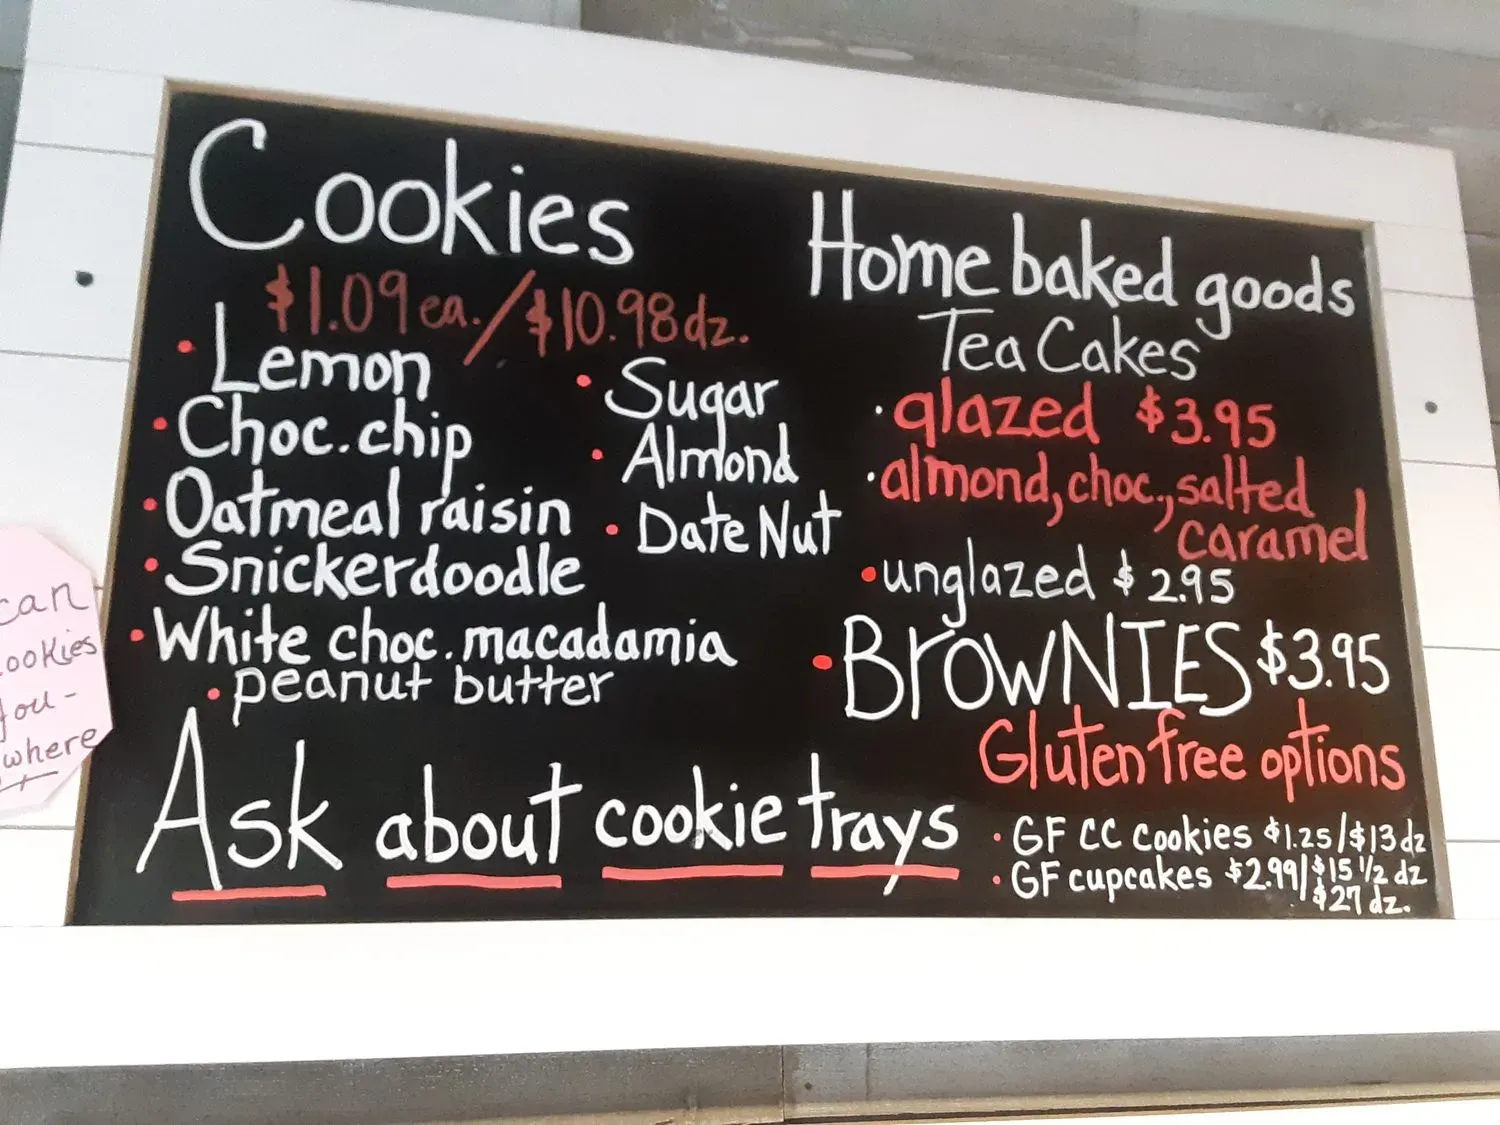 Cookies
$1.09 ea./$10.98 dz.
• Lemon
• Choc. chip
• Oatmeal raisin
• Snickerdoodle
• White choc. macadamia
• peanut butter
• Sugar
• Almond
• Date Nut
Ask about cookie trays
Home baked goods
Tea Cakes
• glazed $3.95
• almond, choc., salted
caramel
• unglazed $2.95
• BrOWNIES $3.95
Gluten free options
• GF CC Cookies $1.25/$13 dz
• GF cupcakes $2.99/$15 1/2 dz
$27 dz.
can
ookies
you-
where